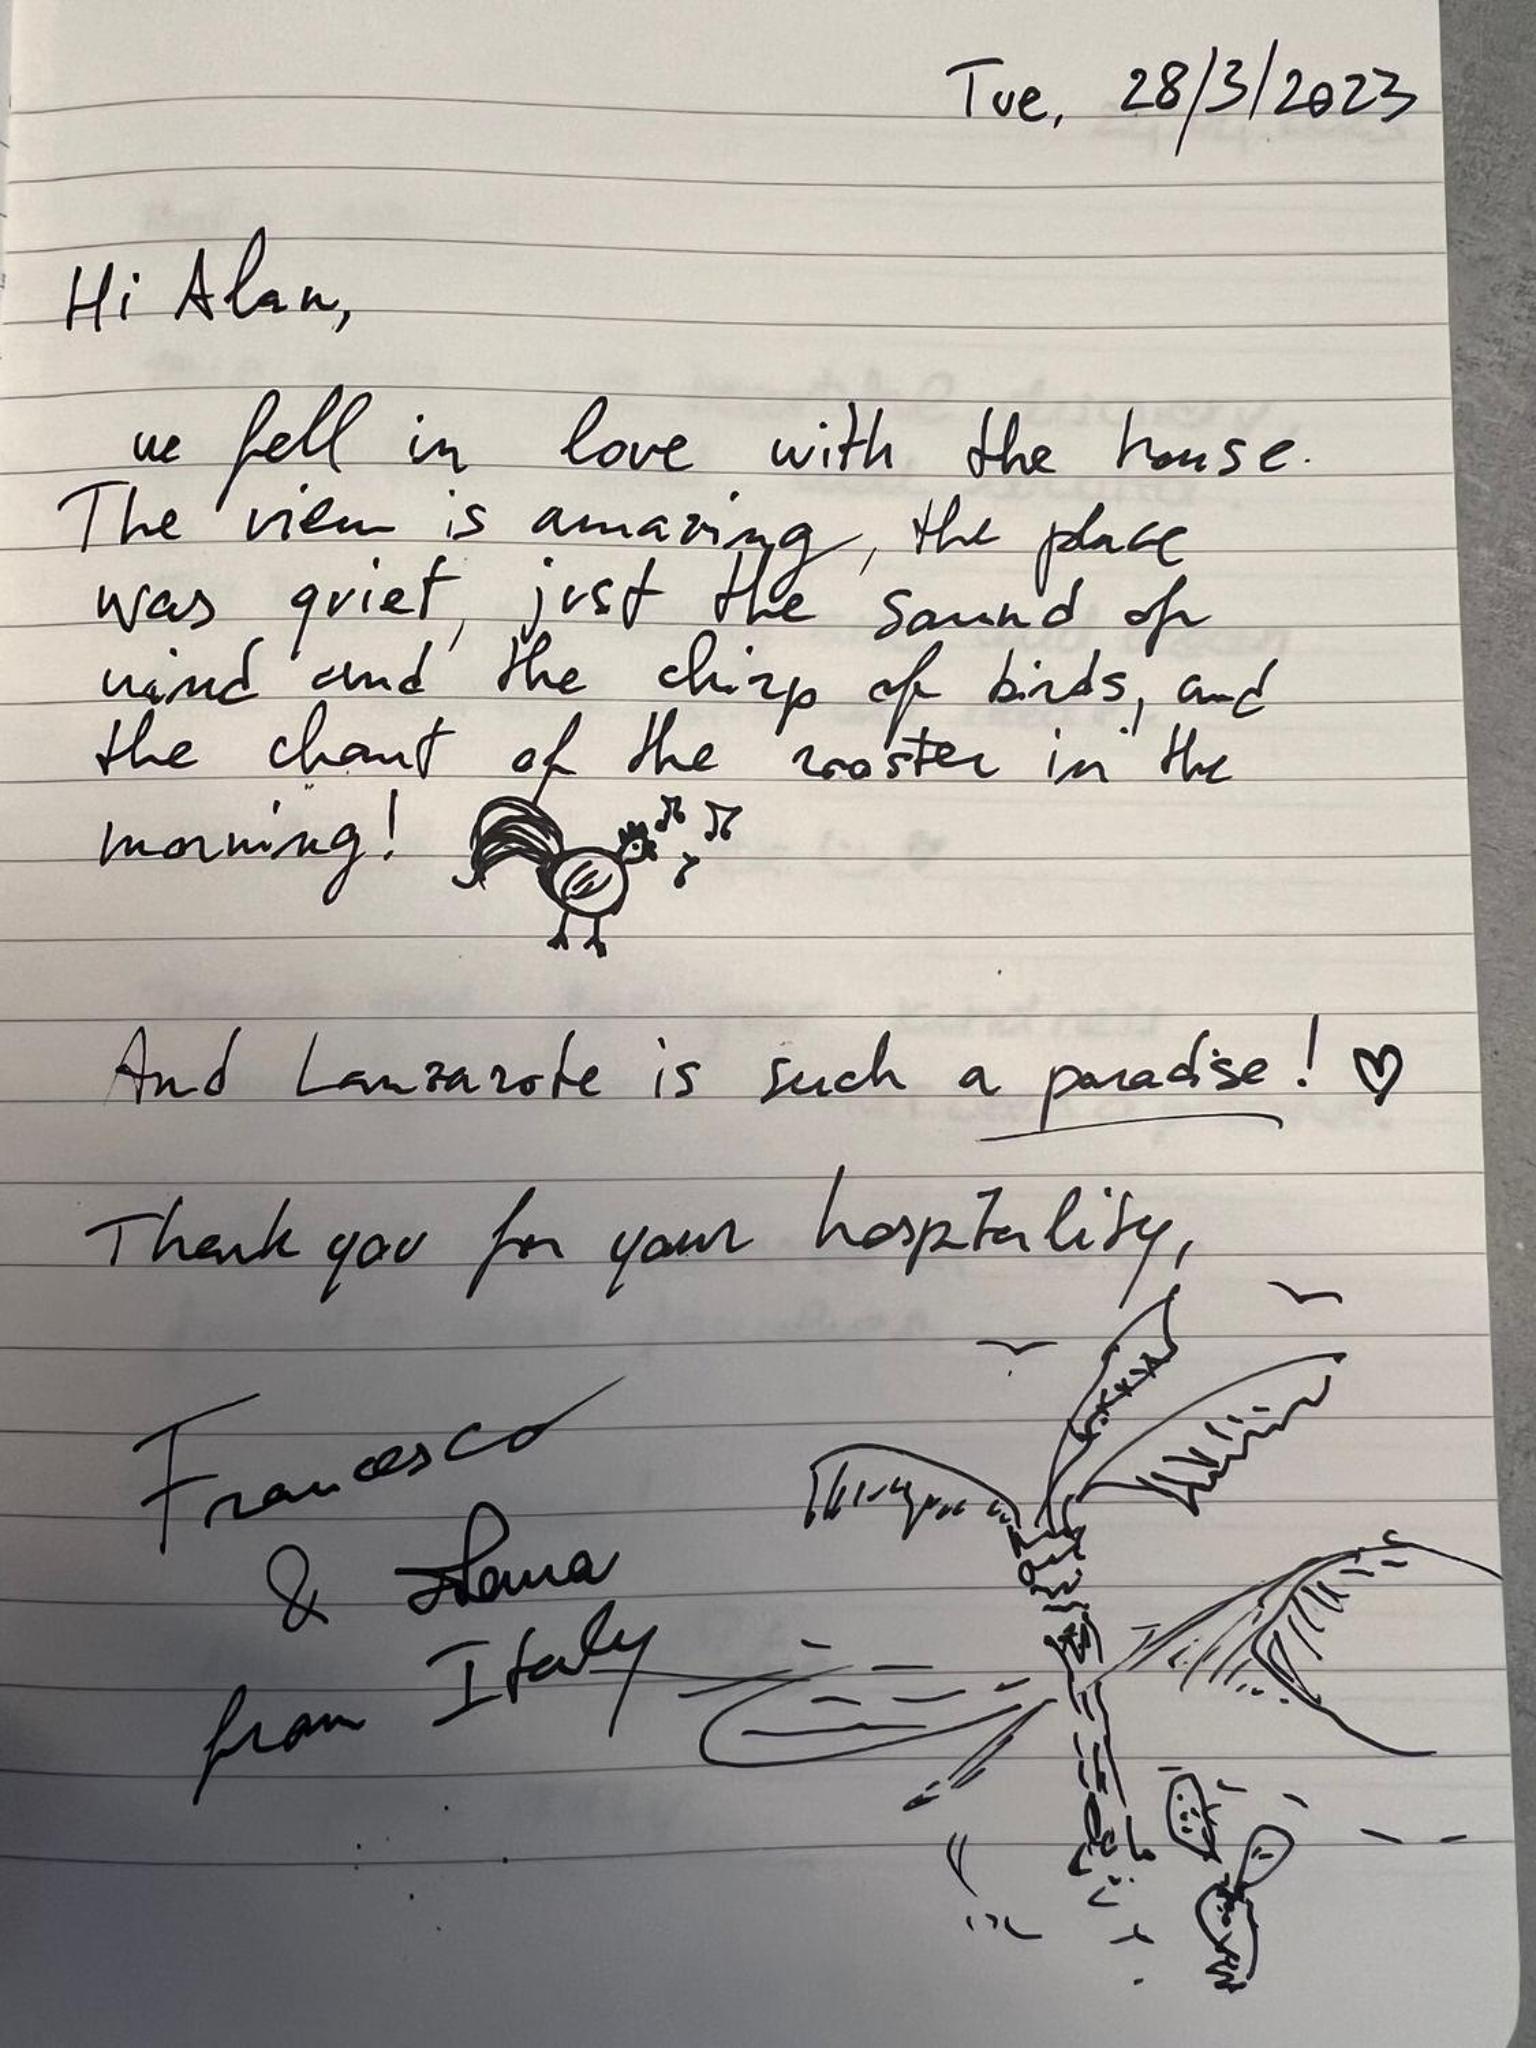 Tue, 28/3/2023
Hi Alan,
we fell in love with the house.
The view is amazing, the place
was quiet, just the sound of
wind and the chirp of birds, and
the chant of the rooster in the
morning!
And Lanzarote is such a paradise! ♡
Thank you for your hospitality,
Francesco
&
from Italy